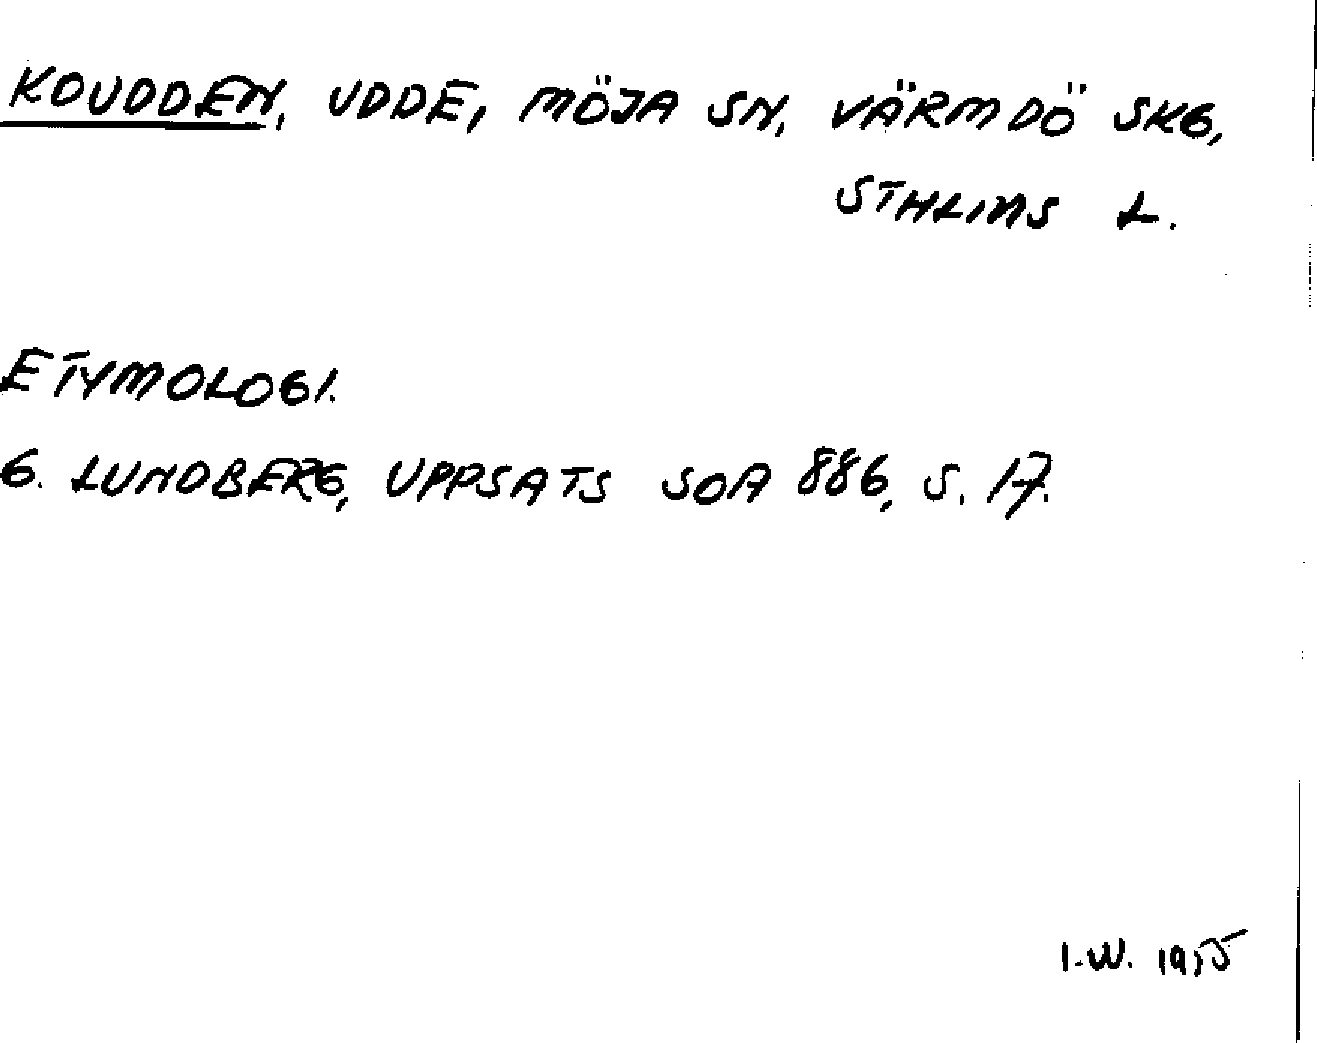 KOUDDEN, UDDE, MÖJA SN, VÄRMDÖ SKG,
STHLMS L.
ETYMOLOGI.
G. LUNDBERG, UPPSATS SOA 886, S. 17.
I.W. 1955